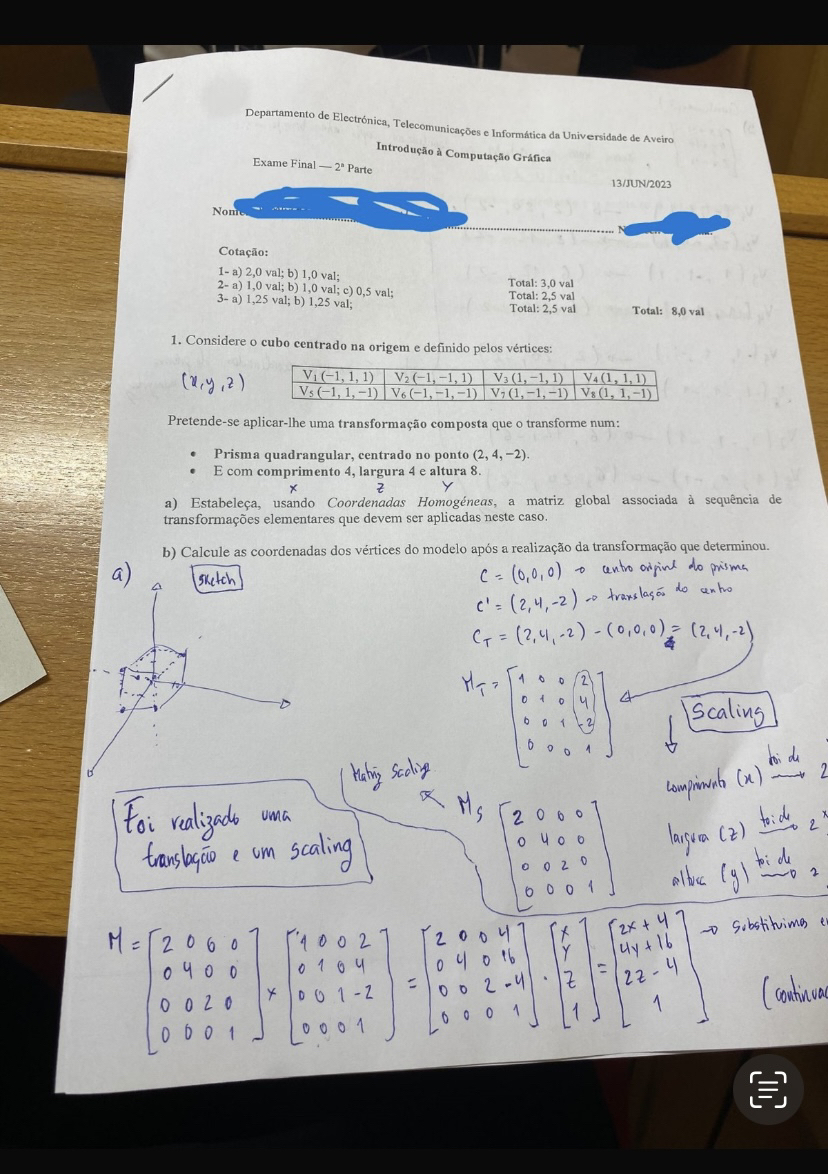 Departamento de Electrónica, Telecomunicações e Informática da Universidade de Aveiro
Introdução à Computação Gráfica
Exame Final — 2ª Parte
13/JUN/2023
Nome
N
Cotação:
1- a) 2,0 val; b) 1,0 val; Total: 3,0 val
2- a) 1,0 val; b) 1,0 val; c) 0,5 val; Total: 2,5 val
3- a) 1,25 val; b) 1,25 val; Total: 2,5 val Total: 8,0 val
1. Considere o cubo centrado na origem e definido pelos vértices:
(x,y,z)
V1 (−1, 1, 1) V2 (−1, −1, 1) V3 (1, −1, 1) V4 (1, 1, 1)
V5 (−1, 1, −1) V6 (−1, −1, −1) V7 (1, −1, −1) V8 (1, 1, −1)
Pretende-se aplicar-lhe uma transformação composta que o transforme num:
• Prisma quadrangular, centrado no ponto (2, 4, −2).
• E com comprimento 4, largura 4 e altura 8.
x z y
a) Estabeleça, usando Coordenadas Homogéneas, a matriz global associada à sequência de
transformações elementares que devem ser aplicadas neste caso.
b) Calcule as coordenadas dos vértices do modelo após a realização da transformação que determinou.
a)
sketch
C = (0,0,0) → centro origine do prisma
C' = (2,4,-2) → translação do centro
CT = (2,4,-2) - (0,0,0) = (2,4,-2)
MT = [1 0 0 2
0 1 0 4
0 0 1 -2
0 0 0 1]
Scaling
Matriz Scaling
MS [2 0 0 0
0 4 0 0
0 0 2 0
0 0 0 1]
comprimento (x) foi de → 2
largura (z) foi de → 2
altura (y) foi de → 2
Foi realizado uma
translação e um scaling
M = [2 0 0 0 × [1 0 0 2 = [2 0 0 4 · [x = [2x + 4 → Substituimos
0 4 0 0 0 1 0 4 0 4 0 16 y 4y + 16
0 0 2 0 0 0 1 -2 0 0 2 -4 z 2z - 4
0 0 0 1] 0 0 0 1] 0 0 0 1] 1] 1]
(continuac